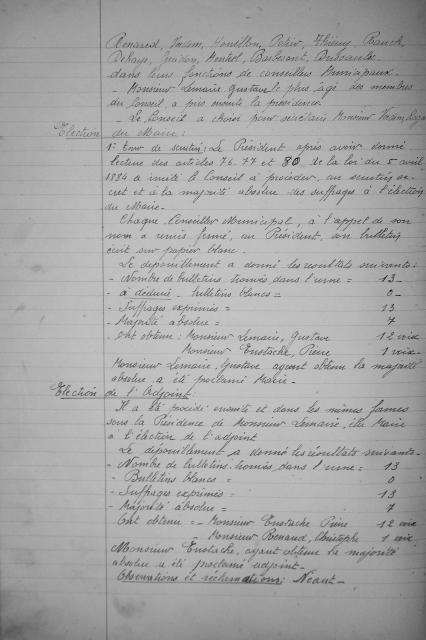 Renard, Houillon, Thiény, Ranck,
Dehaye, Henkel, Barbesant, Dubsault
dans leurs fonctions de conseillers Municipaux.
- Monsieur Lemaire Gustave le plus âgé des membres
du Conseil a pris ensuite la présidence
- Le Conseil a choisi pour secrétaire Monsieur
Election du Maire :
1er Tour de scrutin : Le Président après avoir donné
lecture des articles 76. 77 et 80 de la loi du 5 avril
1884 a invité le Conseil à procéder, au scrutin se-
cret et à la majorité absolue des suffrages à l'élection
du Maire.
Chaque Conseiller Municipal, à l'appel de son
nom a remis fermé, au Président, son bulletin
écrit sur papier blanc.
Le dépouillement a donné les résultats suivants :
- Nombre de bulletins trouvés dans l'urne = 13 -
- à déduire - bulletins blancs = 0 -
- Suffrages exprimés = 13
- Majorité absolue = 7
- Ont obtenu : Monsieur Lemaire, Gustave 12 voix
Monsieur Eustache, Pierre 1 voix -
Monsieur Lemaire, Gustave ayant obtenu la majorité
absolue a été proclamé Maire -
Election de l'Adjoint :
Il a été procédé ensuite et dans les mêmes formes
sous la Présidence de Monsieur Lemaire, élu Maire
à l'élection de l'adjoint
Le dépouillement a donné les résultats suivants -
- Nombre de bulletins trouvés dans l'urne = 13
- Bulletins blancs = 0
- Suffrages exprimés = 13
- Majorité absolue = 7
Ont obtenu = - Monsieur Eustache Pierre 12 voix
Monsieur Renaud, Christophe 1 voix
Monsieur Eustache, ayant obtenu la majorité
absolue a été proclamé adjoint -
Observations et réclamations : Néant -